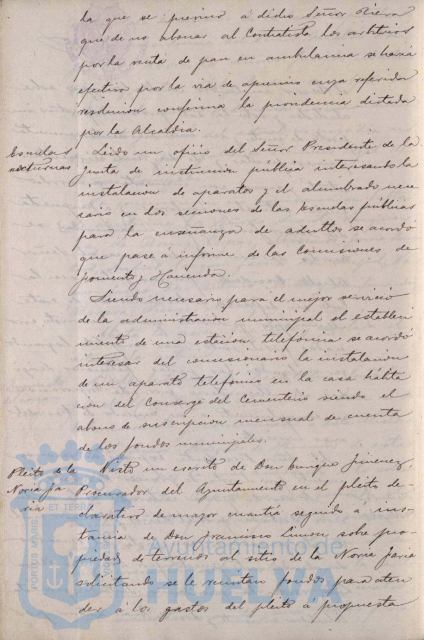 la que se previno á dicho Señor Riera
que de no abonar al Contratista los arbitrios
por la venta de pan en ambulancia se haria
efectivo por la via de apremio cuya referida
resolucion confirma la providencia dictada
por la Alcaldia.
Escuelas nocturnas
Leido un oficio del Señor Presidente de la
Junta de instruccion pública interesando la
instalacion de aparatos y el alumbrado nece
sario en dos secciones de las Escuelas públicas
para la enseñanza de adultos se acordó
que pase á informe de las Comisiones de
fomento y Hacienda.
Siendo necesario para el mejor servicio
de la administracion municipal el estableci
miento de una estacion telefónica se acordó
interesar del concesionario la instalacion
de un aparato telefónico en la casa habita
cion del Conserge del Cementerio siendo el
abono de suscripcion mensual de cuenta
de los fondos municipales.
Pleito de la Noria Ja
ria
Visto un escrito de Don Enrique Jimenez,
Procurador del Ayuntamiento en el pleito de
clarativo de mayor cuantia seguido á ins
tancia de Don Francisco Limon sobre pro
piedad de terrenos al sitio de la Noria Jaria
solicitando se le remitan fondos para aten
der á los gastos del pleito á propuesta
Ayuntamiento de
HUELVA
PORTUS MARIS ET TERRÆ